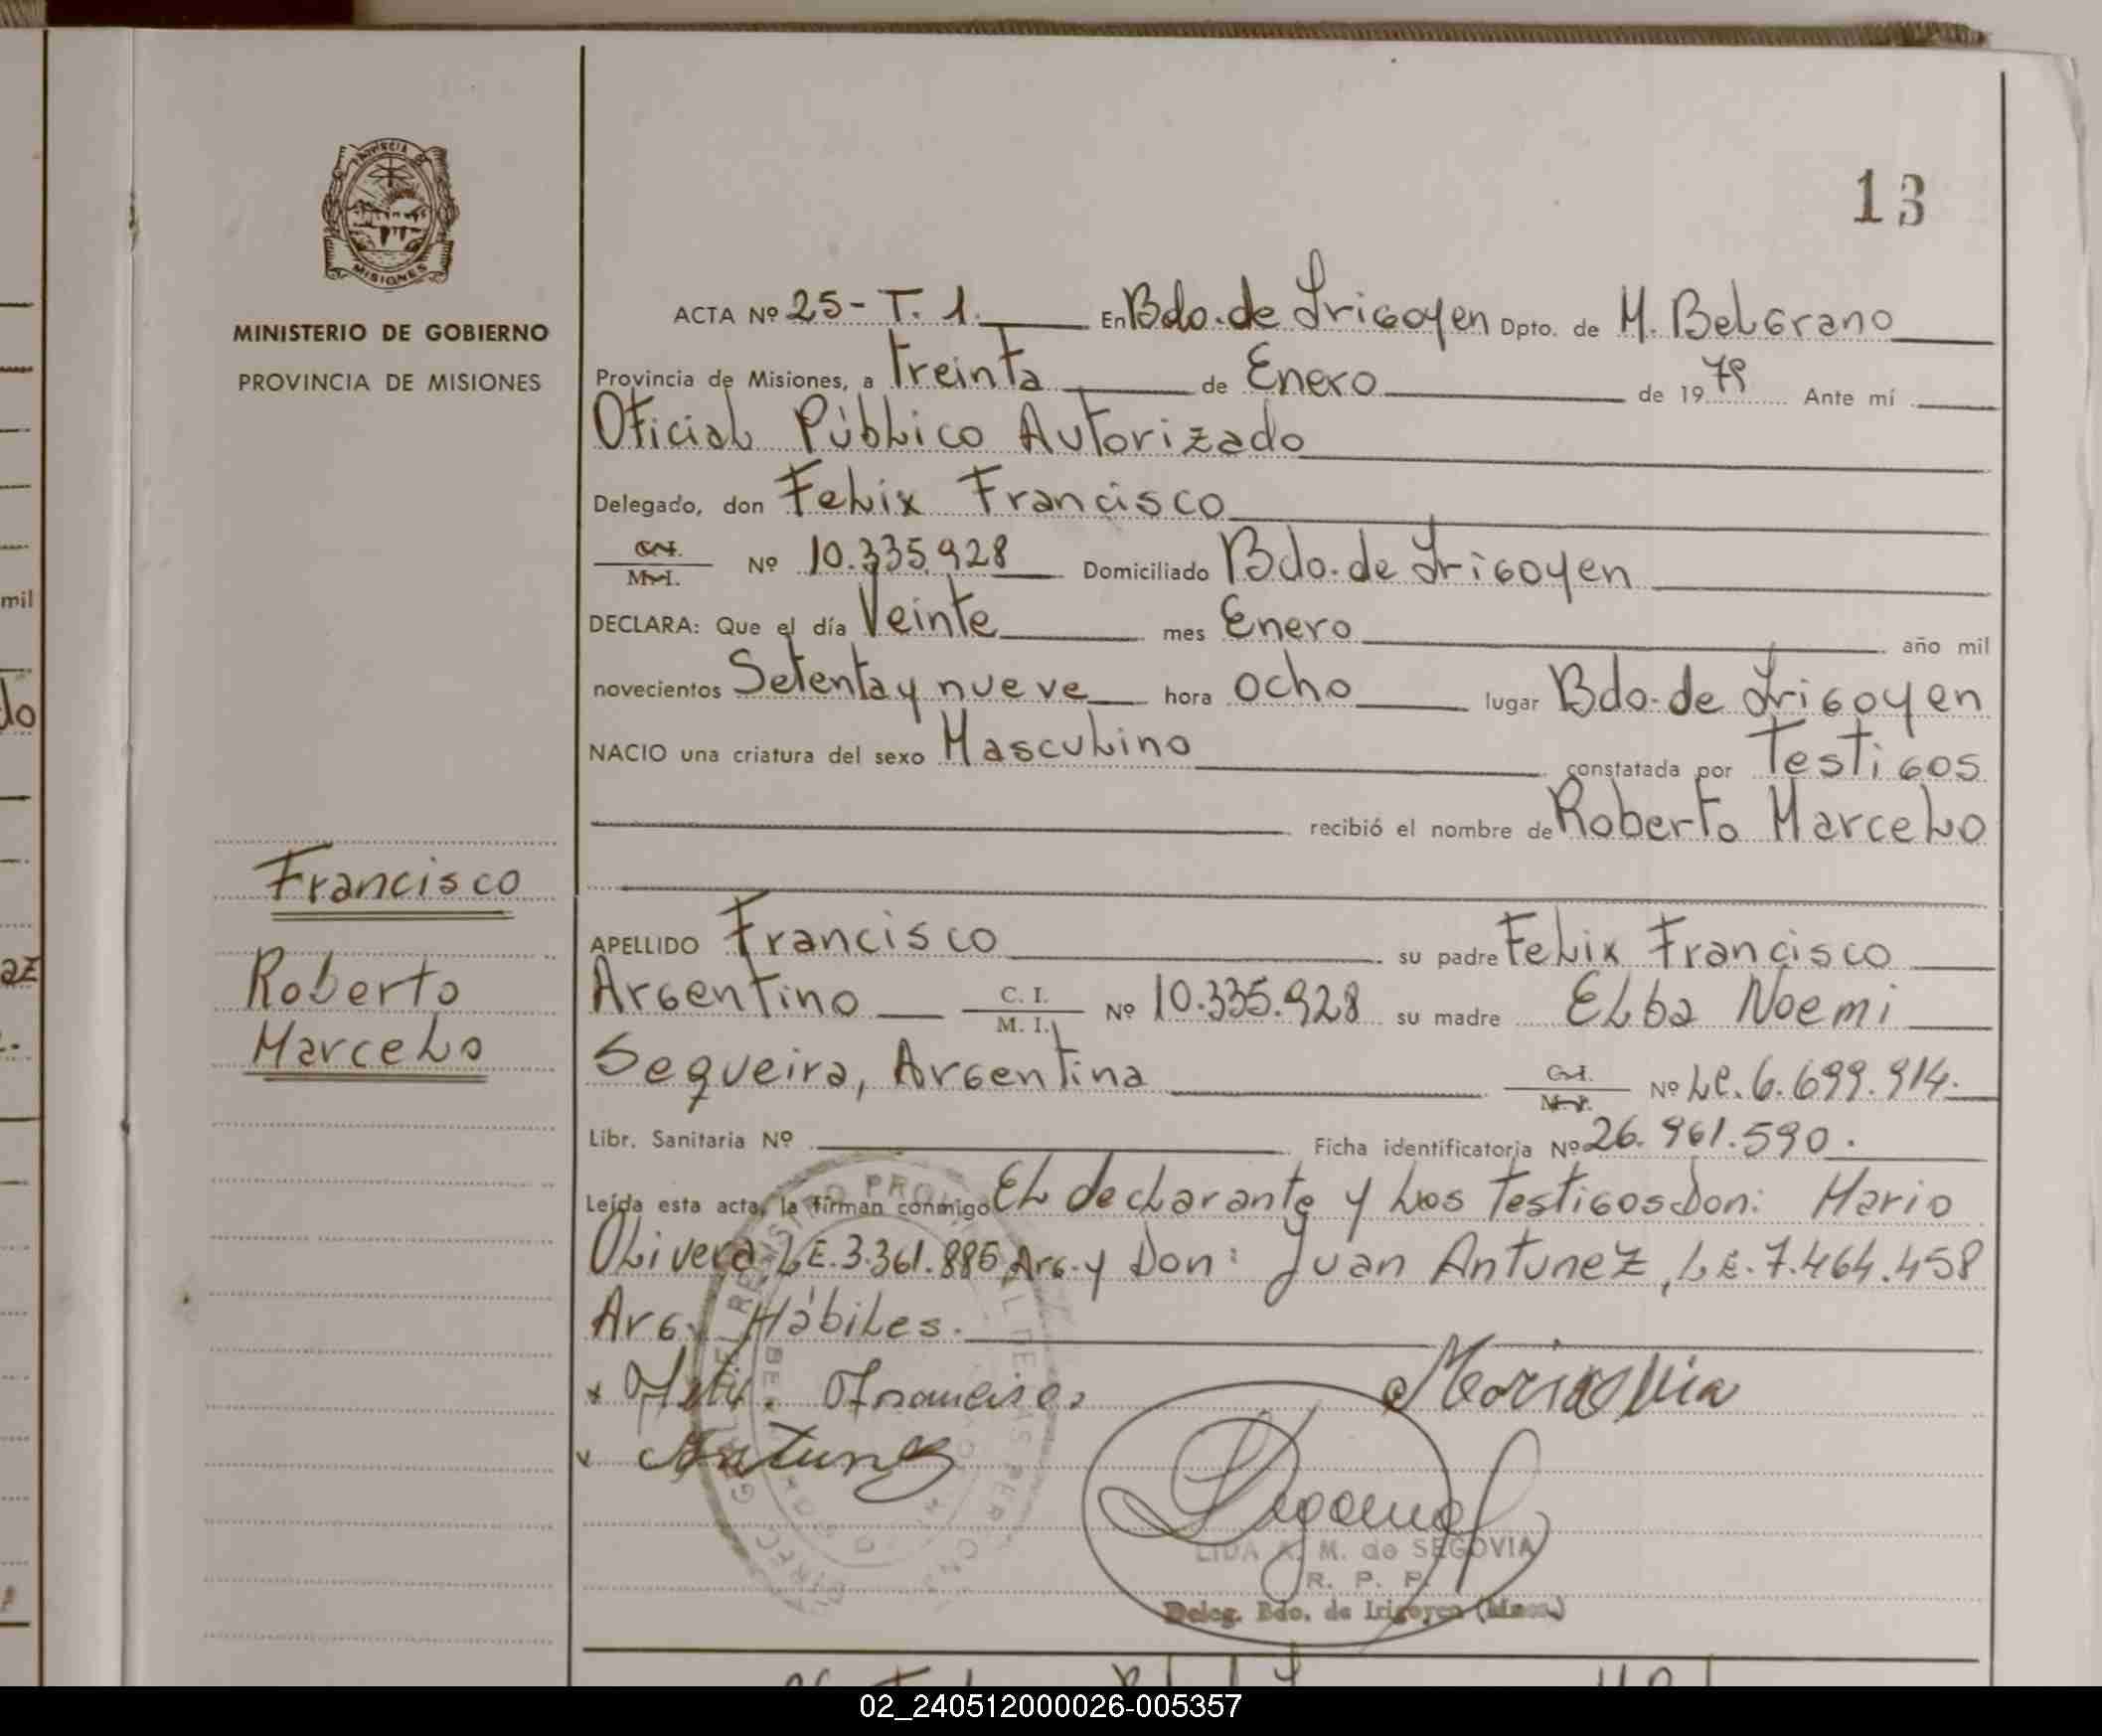 13
PROVINCIA DE
MISIONES
MINISTERIO DE GOBIERNO
PROVINCIA DE MISIONES
ACTA Nº 25-T. 1. En Bdo. de Irigoyen Dpto. de M. Belgrano
Provincia de Misiones, a Treinta de Enero de 1979 Ante mí
Oficial Público Autorizado
Delegado, don Felix Francisco
C.I. M.I. Nº 10.335.928 Domiciliado Bdo. de Irigoyen
DECLARA: Que el día Veinte mes Enero año mil
novecientos Setenta y nueve hora ocho lugar Bdo. de Irigoyen
NACIO una criatura del sexo Masculino constatada por Testigos
recibió el nombre de Roberto Marcelo
Francisco
Roberto
Marcelo
APELLIDO Francisco su padre Felix Francisco
Argentino C. I. M. I. Nº 10.335.928 su madre Elba Noemi
Sequeira, Argentina C.I. M.I. Nº Lc. 6.699.914.
Libr. Sanitaria Nº Ficha identificatoria Nº 26.961.590.
Leída esta acta, la firman conmigo El declarante y los Testigos Don: Mario
Olivera, LE. 3.361.886 Arg. y Don: Juan Antunez, LE. 7.464.458
Arg. Hábiles.
Antunez
LIDA A. M. de SEGOVIA
R. P. P.
Deleg. Bdo. de Irigoyen (Mnes.)
02_240512000026-005357